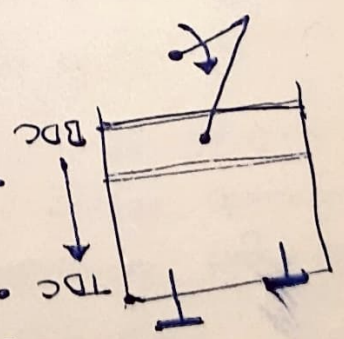 TDC
BDC